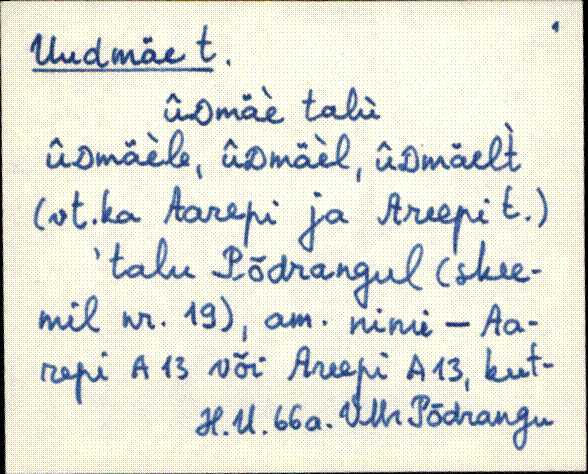 Uudmäe t.
ûᴅmäè talù
ûᴅmäèle, ûᴅmäèl, ûᴅmäelt̀
(vt.ka Aarepi ja Areepi t.)
'talu Põdrangul (skee-
mil nr. 19), am. nimi – Aa-
repi A 13 või Areepi A 13, kut-
H.U. 66a. VMr Põdrangu